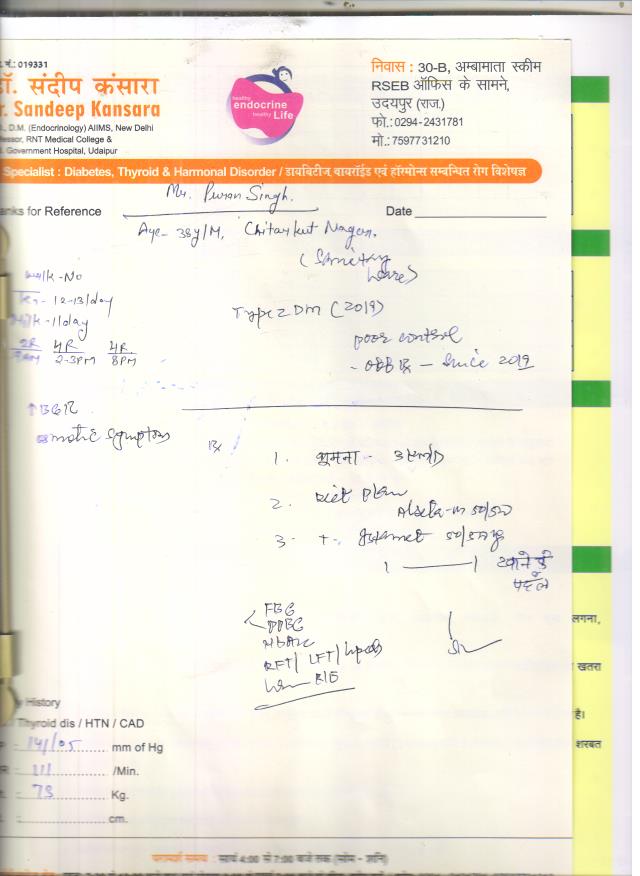 नं.: 019331
डॉ. संदीप कंसारा
r. Sandeep Kansara
D.M. (Endocrinology) AIIMS, New Delhi
fessor, RNT Medical College &
Government Hospital, Udaipur
healthy
endocrine
healthy Life
निवास : 30-B, अम्बामाता स्कीम
RSEB ऑफिस के सामने,
उदयपुर (राज.)
फो.:0294-2431781
मो.: 7597731210
Specialist : Diabetes, Thyroid & Harmonal Disorder / डायबिटीज् थायरॉईड एवं हॉरमोन्स सम्बन्धित रोग विशेषज्ञ
Mr. Puran Singh.
anks for Reference
Date
Age- 38y/M, Chitarkut Nagar.
(Sanitary
ware)
walk - No
12-13/day
Milk - 1/day
2R 4R 4R
9AM 2-3PM 8PM
Type 2 DM (2019)
poor control
- since 2019
↑BGR
osmotic symptoms
Rx
1. घूमना -
2. Diet Plan
50/500
3. T. 50/500mg
1 — 1 खाने के
पहले
FBG
PPBG
HbA1c
RFT/ LFT/ lipids
Urine R/E
लगना,
खतरा
है।
शरबत
y History
Thyroid dis / HTN / CAD
P : 141/95 mm of Hg
R : 111 /Min.
t. : 73 Kg.
cm.
परामर्श समय : सायं 4:00 से 7:00 बजे तक (सोम - शनि)